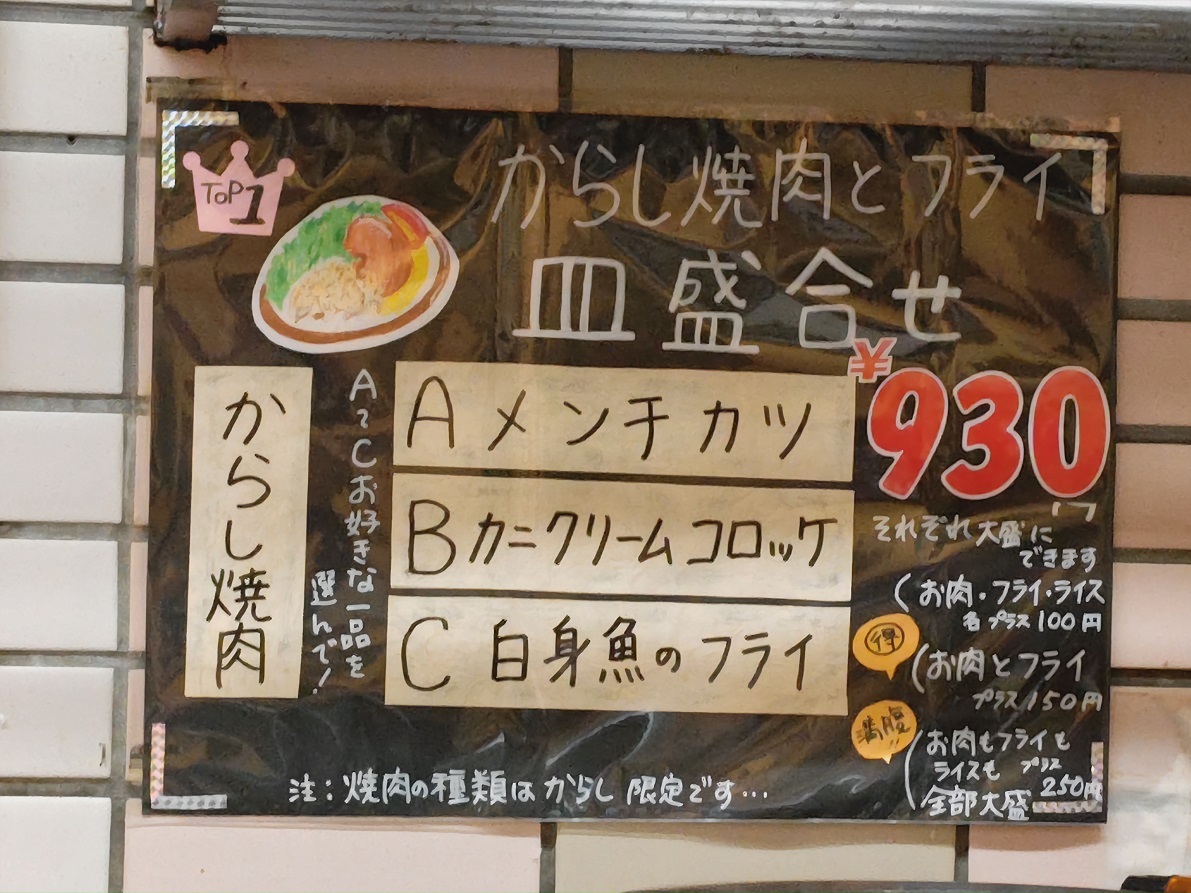 TOP1
からし焼肉とフライ
皿盛合せ
¥930
からし焼肉
A~Cお好きな一品を
選んで!
A メンチカツ
B カニクリームコロッケ
C 白身魚のフライ
それぞれ大盛に
できます
(お肉・フライ・ライス
各プラス100円
得
(お肉とフライ
プラス150円
満腹!!
(お肉もフライも
ライスも プラス
全部大盛 250円
注:焼肉の種類はからし限定です…